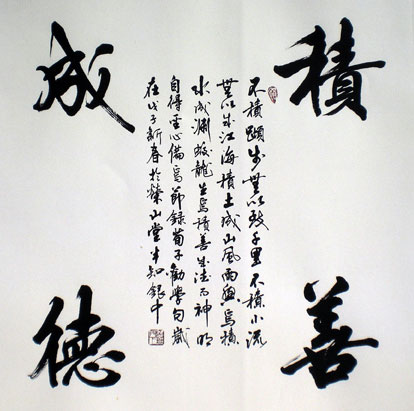 積善
成德
不積蹞步無以致千里不積小流
無以成江海積土成山風雨興焉積
水成淵蛟龍生焉積善成德而神明
自得聖心備焉節錄荀子勸學句歲
在戊子新春於山堂半知銀中